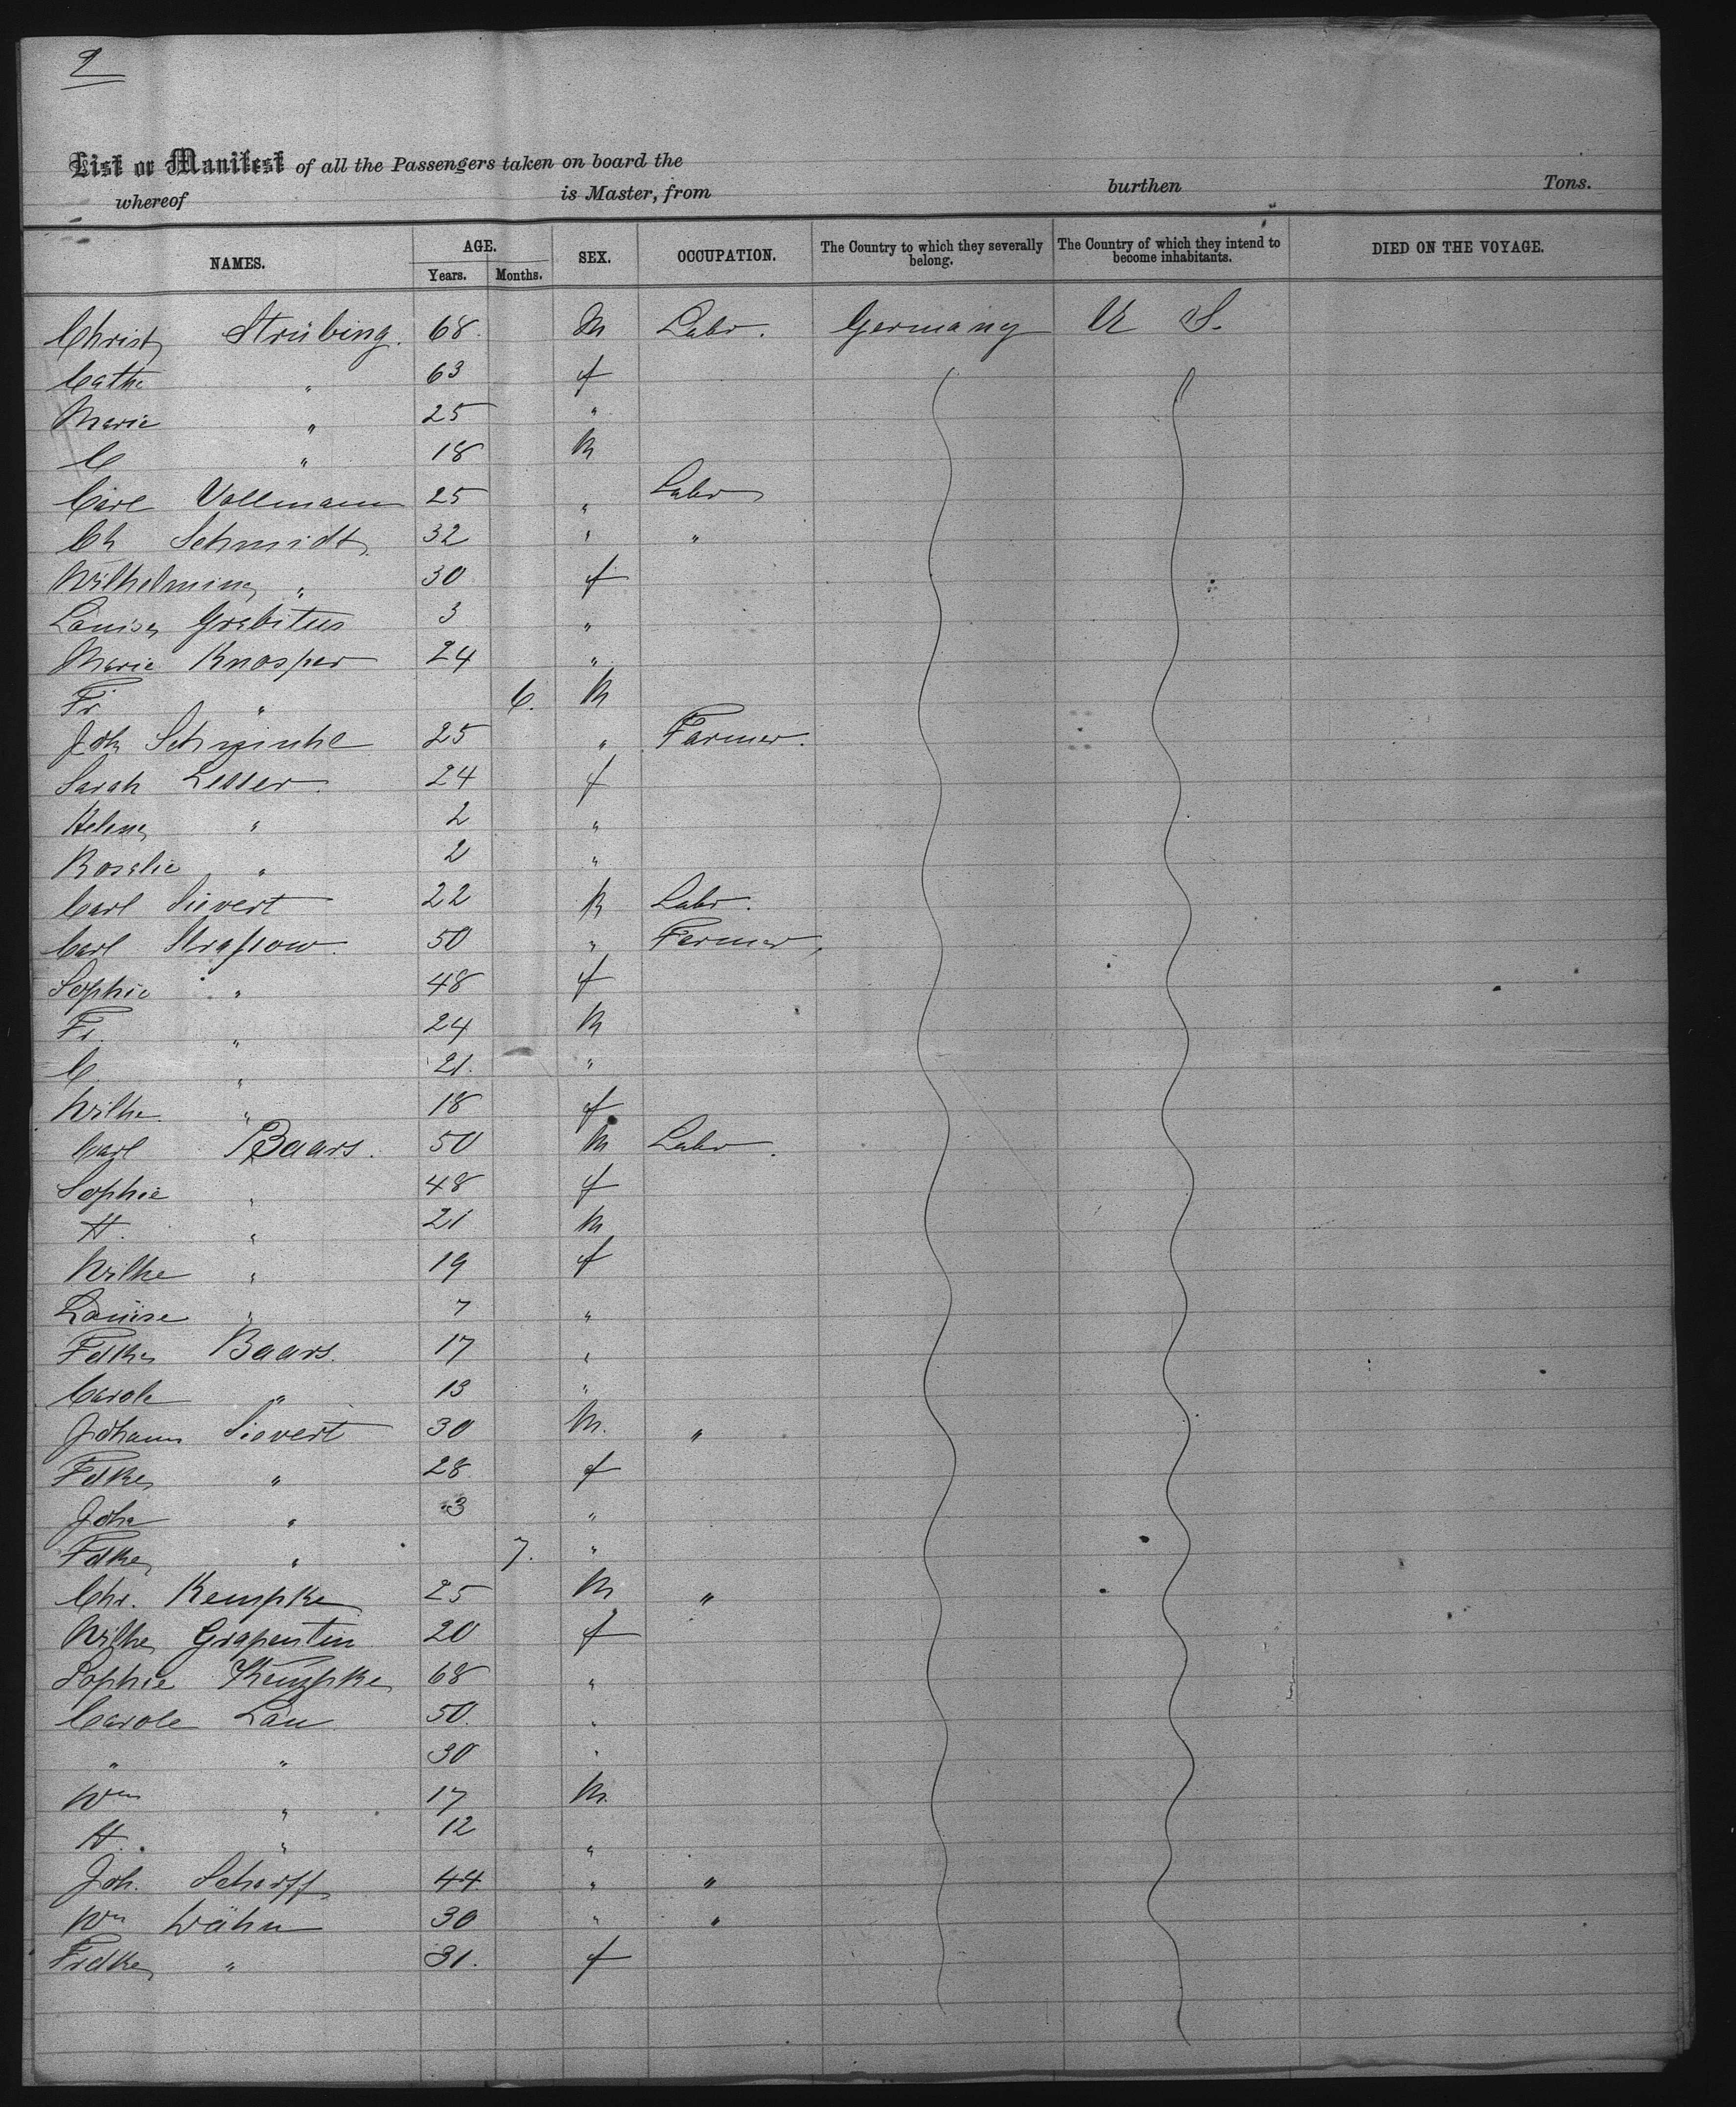 9
List or Manifest of all the Passengers taken on board the
whereof is Master, from burthen Tons.
NAMES. AGE. Years. Months. SEX. OCCUPATION. The Country to which they severally belong. The Country of which they intend to become inhabitants. DIED ON THE VOYAGE.
Christ Strübing. 68. M Labr. Germany U S.
Cathe " 63 f
Marie " 25 "
C " 18 M
Carl Vollmann 25 " Labr
Ch Schmidt 32 " "
Wilhelmine " 30 f
Louise Grabitus 3 "
Marie Knosper 24 "
Fr " 6. M
Joh 25 " Farmer.
Sarah Lesser 24 f
Helene " 2 "
Rosalie " 2 "
Carl Sievert 22 M Labr.
Carl 50 " Farmer
Sophie " 48 f
Fr. " 24 M
C " 21. "
Wilhe " 18 f
Carl Baars. 50 M Labr.
Sophie " 48 f
H. " 21 M
Wilhe " 19 f
Louise " 7 "
Fdke Baars. 17 "
Carole " 13 "
Johann Sievert 30 M. "
Fdke " 28 f
Joha " 3 "
Fdke " 7. "
Chr. Kempke 25 M "
Wilhe Grapentin 20 f
Sophie Kempke 68 "
Carole Lau 50. "
" " 30 "
Wm " 17 M.
H. " 12 "
Joh. Scharff 44 " "
Wm Wähn 30 " "
Fridke " 31. f